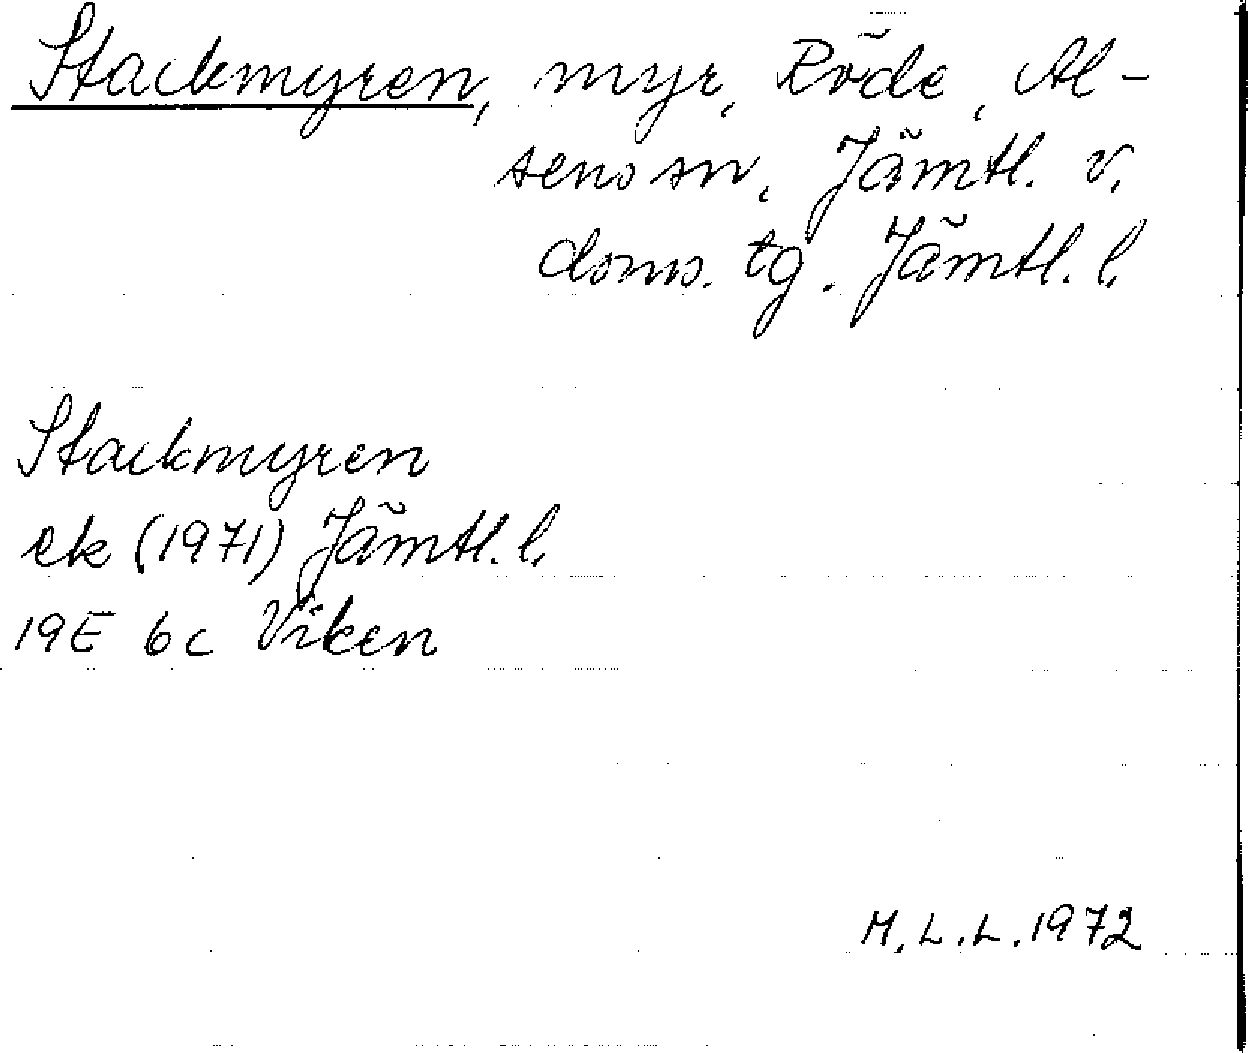 Stackmyren, myr, Röde, Al-
sens sn, Jämtl. v.
doms. tg. Jämtl. l.
Stackmyren
ek (1971) Jämtl. l.
19E 6c Viken
M.L.L. 1972